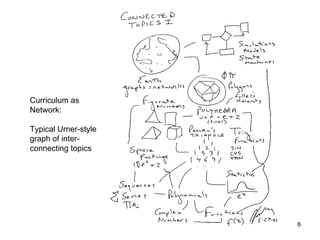 CONNECTED
TOPICS I
Simulations
Models
State
Machines
Earth
graphs : networks
Curriculum as
Network:
Typical Urner-style
graph of inter-
connecting topics
Figurate
Numbers
Polygons
Fuller's
Hierarchy
POLYHEDRA
V + F = E + 2
(Euler)
Pascal's
TRIANGLE
1
1 1
1 2 1
1 3 3 1
1 4 6 4 1
Trig
Functions
SIN
COS
TAN
Sphere
Packings
10F² + 2
Statistics
Sequences
Σ Series
Polynomials
Complex
Numbers
Functions
f(x)
6